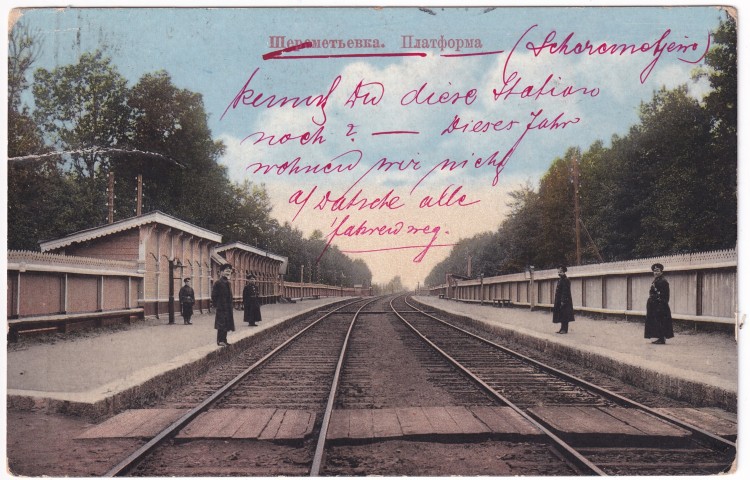 Шереметьевка. Платформа (Scheremetjewo)
Kennst Du diese Station
noch? — Dieses Jahr
wohnen wir nicht
a/Datsche alle
fahren weg.